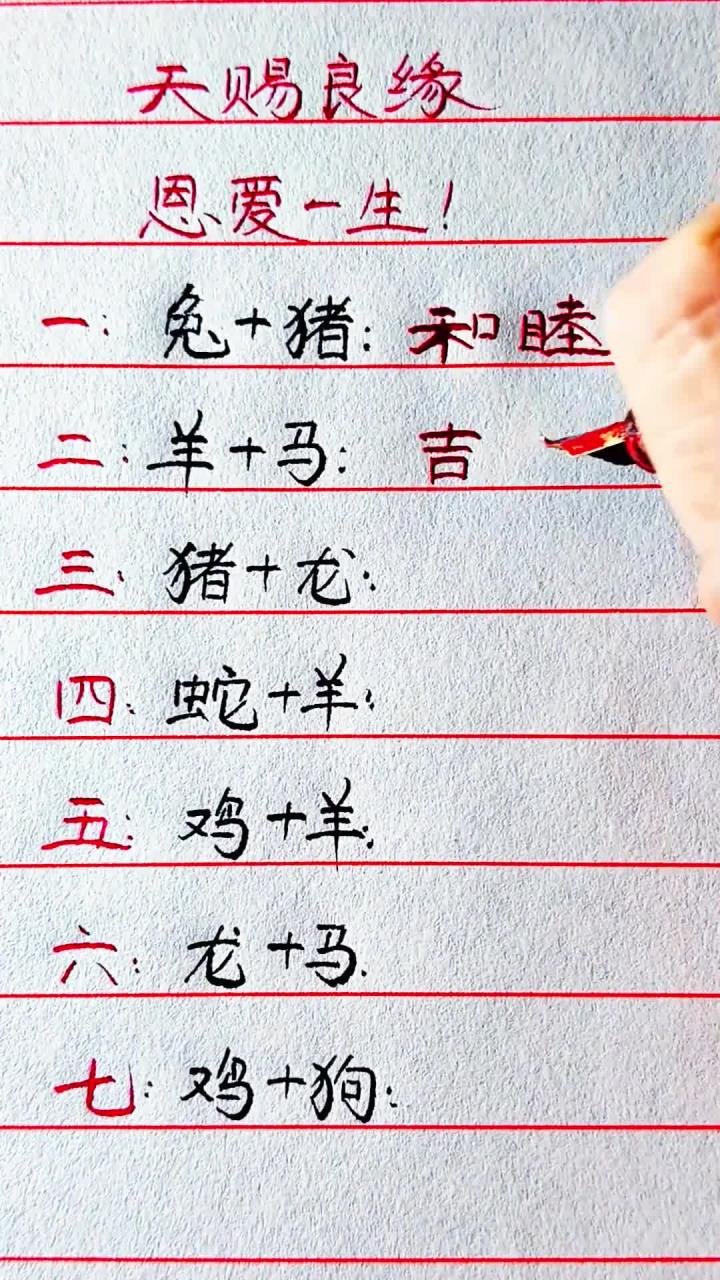 天赐良缘
恩爱一生！
一：兔+猪：和睦
二：羊+马：吉
三：猪+龙：
四：蛇+羊：
五：鸡+羊：
六：龙+马：
七：鸡+狗：